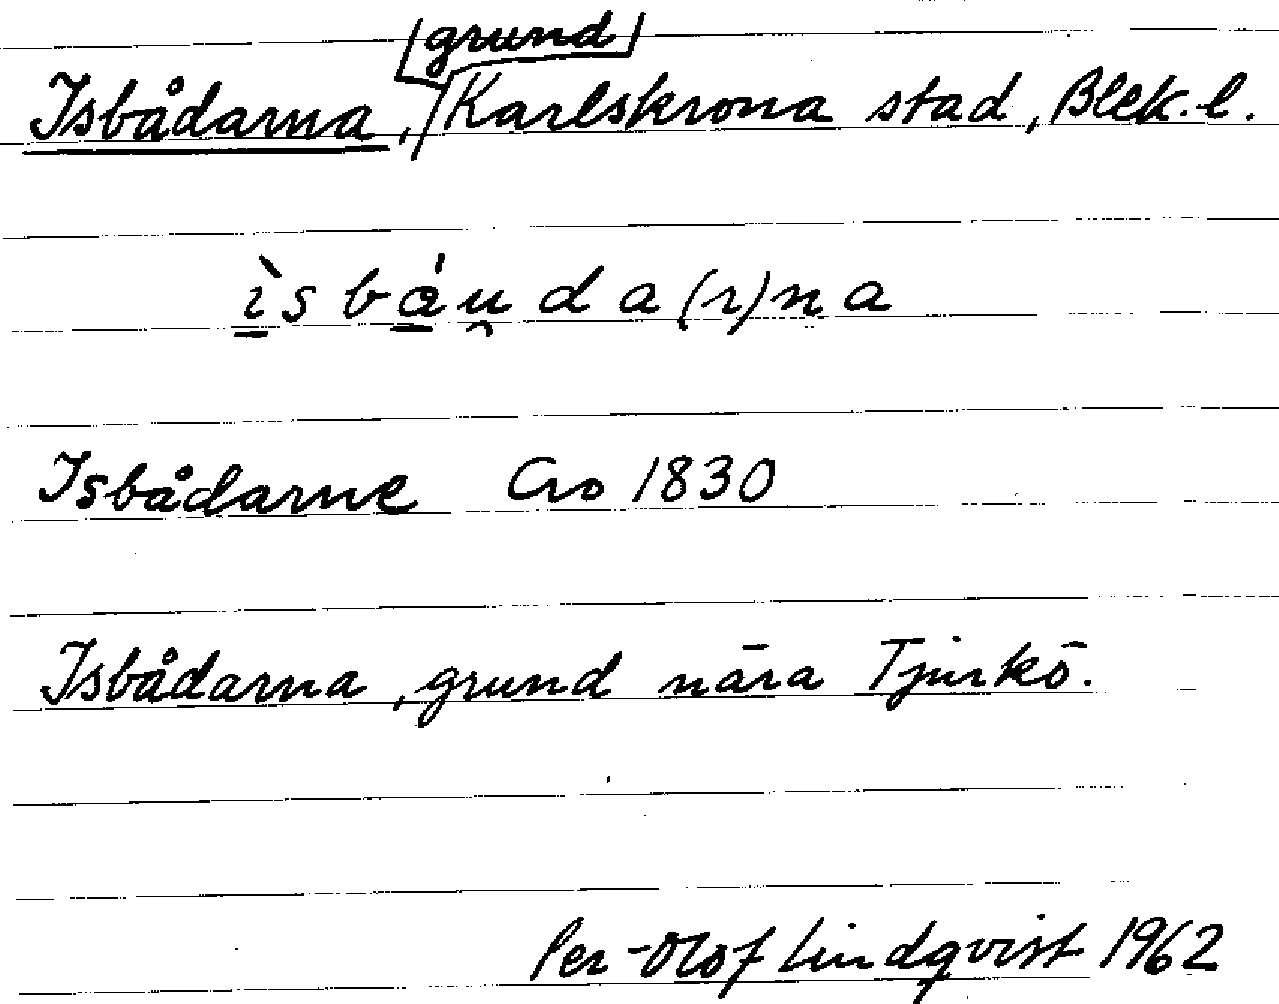 Isbådarna, grund, Karlskrona stad, Blek. l.
ìsbáu̯da(r)na
Isbådarne Cro 1830
Isbådarna, grund nära Tjurkö.
Per-Olof Lindqvist 1962